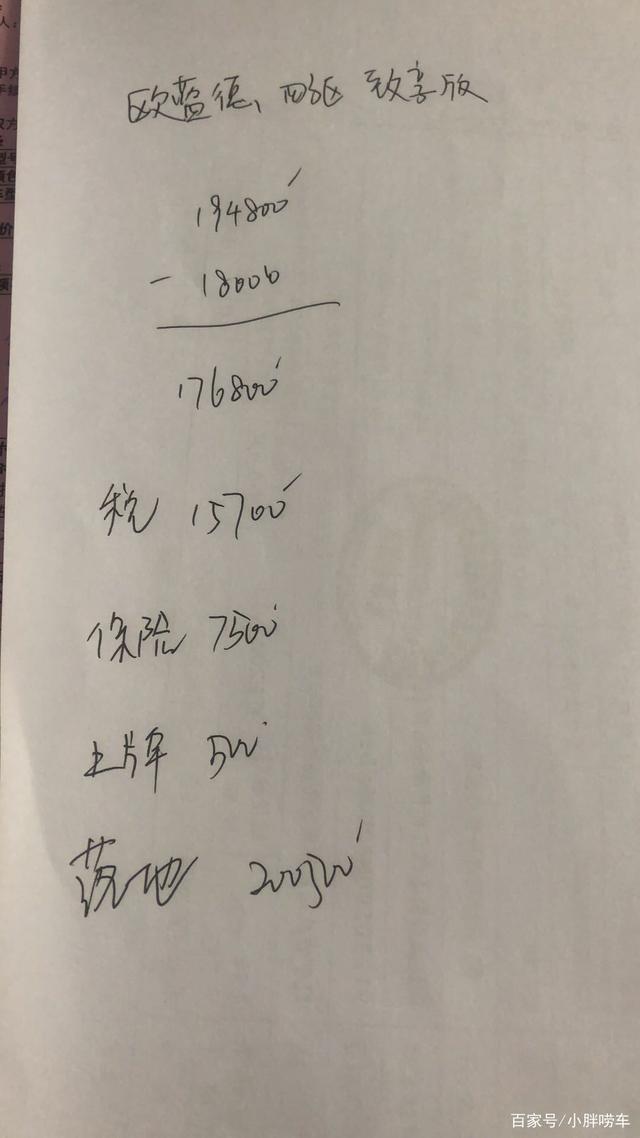 欧蓝德、四驱 致享版
194800
- 18000
176800
税 15700
保险 7500
上牌 500
落地 200500
百家号/小胖唠车